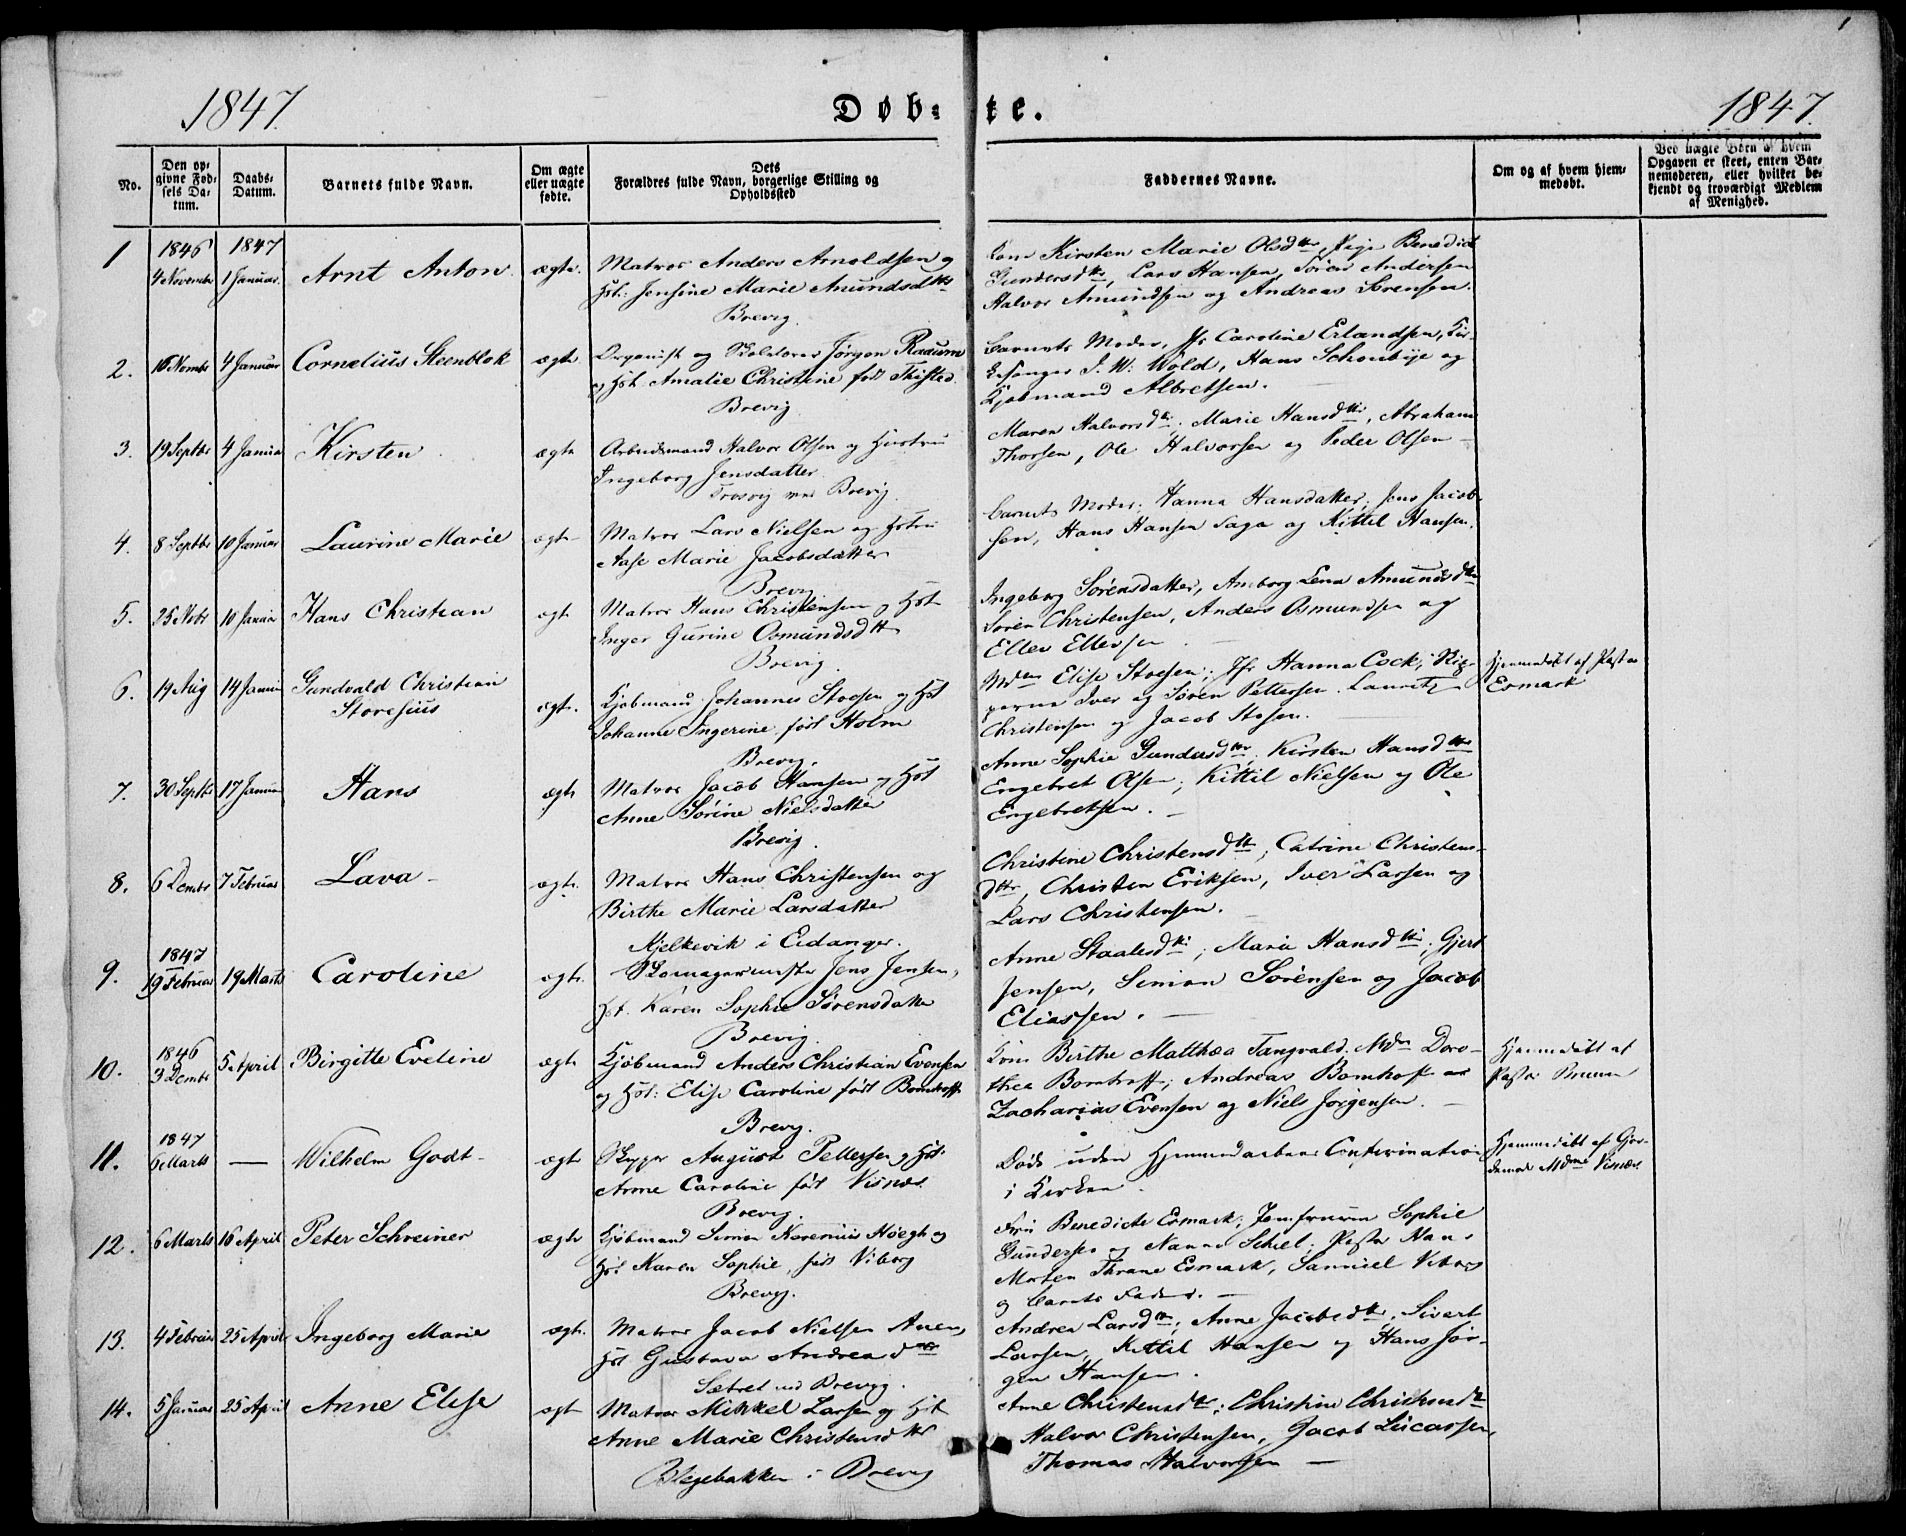 1
1847.
Døb-
te.
1847.
No.
Den op-
givne Fød-
sels Da-
tum.
Daabs-
Datum.
Barnets fulde Navn.
Om ægte
eller uægte
fødte.
Dets
Forældres fulde Navn, borgerlige Stilling og
Opholdssted
Faddernes Navne.
Om og af hvem hjem-
medøbt.
Ved uægte Børn af hvem
Opgaven er skeet, enten Bar-
nemoderen, eller hvilket be-
kjendt og troværdigt Medlem
af Menighed.
1
1846
4 Novembr
1847
1 Januar
Arnt Anton
ægte
Matros Anders Arnoldsen og
Hst: Jensine Marie Amundsdtr
Brevig.
Kone Kirsten Marie Olsdtr, Pige Benedict
Gundersdtr, Lars Hansen, Søren Andersen
Halvor Amundsen og Andreas Sørensen.
2.
16 Novmbr
4 Januar
Cornelius Steenblok
ægte
Organist og Skolelærer Jørgen Raaum
og Hst. Amalie Christine født Thisted.
Brevig
Barnets Moder, Jfr Caroline Erlandsen, Kir-
kesanger J. W. Wold, Hans Schønbye og
Kjøbmand Albretsen.
3.
19 Septbr
4 Januar
Kirsten
ægte
Arbeidsmand Halvor Olsen og Hustru
Ingeborg Jensdatter
Trosvig ved Brevig.
Maren Halvorsdtr, Marie Hansdtr, Abraham
Thorsen, Ole Halvorsen og Peder Olsen
4.
8 Septbr
10 Januar
Laurine Marie
ægte
Matros Lars Nielsen og Hstru
Aase Marie Jacobsdatter
Brevig
Barnets Moder, Hanna Hansdatter, Jens Jacob-
sen, Hans Hansen Saga og Kittil Hansen.
5.
25 Novbr
10 Januar
Hans Christian
ægte
Matros Hans Christensen og Hst
Inger Gurine Osmundsdtr
Brevig.
Ingeborg Sørensdatter, Anborg Lena Amundsdtr
Søren Christensen, Anders Osmundsen og
Ellev Ellevsen
6.
19 Aug
14 Januar
Gundvald Christian
Storesius
ægte.
Kjøbmand Johannes Stoesen og Hst
Johanne Ingerine født Holm
Brevig.
Mdm Elise Stoesen, Jfr Hanna Cock, Skip-
perne Iver og Søren Pettersen. Lauritz
Christensen og Jacob Stoesen.
Hjemmedøbt af Pastor
Esmark
7.
30 Septbr
17 Januar
Hans
ægte
Matros Jacob Hansen og Hst
Anne Sørine Nielsdatter
Brevig.
Anne Sophie Gundersdtr, Kirsten Hansdtr
Engebret Olsen, Kittil Nielsen og Ole
Engebretsen.
8.
6 Decmbr
7 Februar
Lava
ægte.
Matros Hans Christensen og
Birthe Marie Larsdatter
Kjelkevik i Eidanger.
Christine Christensdtr, Catrine Christens-
dtr, Christen Eriksen, Iver Larsen og
Lars Christensen.
9.
1847
19 Februar
19 Marts
Caroline
ægte.
Skomagermester Jens Jensen,
Hst. Karen Sophie Sørensdatter
Brevig.
Anne Staalesdtr; Maria Hansdtr; Gjert
Jensen, Simon Sørensen og Jacob
Eliassen.
10.
1846
3 Decmbr
5 April
Birgitte Eveline
ægte
Kjøbmand Anders Christian Evensen
og Hst: Elise Caroline født Bomhoff
Brevig.
Kone Birthe Matthea Tangvald, Mdm Doro-
thea Bomhoff; Andreas Bomhoff
Zacharias Evensen og Niels Jørgensen.
Hjemmedøbt af
Pastor Bruun
11.
1847
6 Marts
—
Wilhelm Godt
ægte
Skipper August Pettersen og Hst:
Anne Caroline født Visnæs.
Brevig.
Døde uden Hjemmedaabens Confirmation
i Kirken.
Hjemmedøbt af Gjor-
demor Mdme Visnæs.
12.
6 Marts
16 April
Peter Schreiner
ægte
Kjøbmand Simon Kareniüs Høegh og
Hst Maren Sophie, født Viborg
Brevig.
Fru Benedicte Esmark; Jomfruerne Sophie
Gundersen og Nanna Schiel; Pastor Hans
Morten Thrane Esmark, Samuel Viborg
og Barnets Fader.
13.
4 Februar
25 April
Ingeborg Marie
ægte.
Matros Jacob Nielsen Aaen,
Hst Gustava Andreadtr
Sætret ved Brevig.
Andrea Larsdtr, Anne Jacobsdtr, Sivert
Larsen, Kittil Hansen og Hans Jør-
gen Hansen.
14.
5 Januar
25 April
Anne Elise
ægte
Matros Mikkel Larsen og Hst
Anne Marie Christensdtr
Blegebakken i Brevig
Anne Christensdtr; Christine Christensdtr
Halvor Christensen, Jacob Lucassen,
Thomas Halvorsen